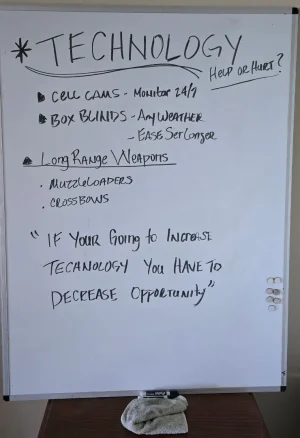 * TECHNOLOGY
HELP OR HURT?
CELL CAMS - MONITOR 24/7
BOX BLINDS - ANY WEATHER
- EASE SET LONGER
LONG RANGE WEAPONS
. MUZZLELOADERS
. CROSSBOWS
"IF YOUR GOING TO INCREASE
TECHNOLOGY YOU HAVE TO
DECREASE OPPORTUNITY"